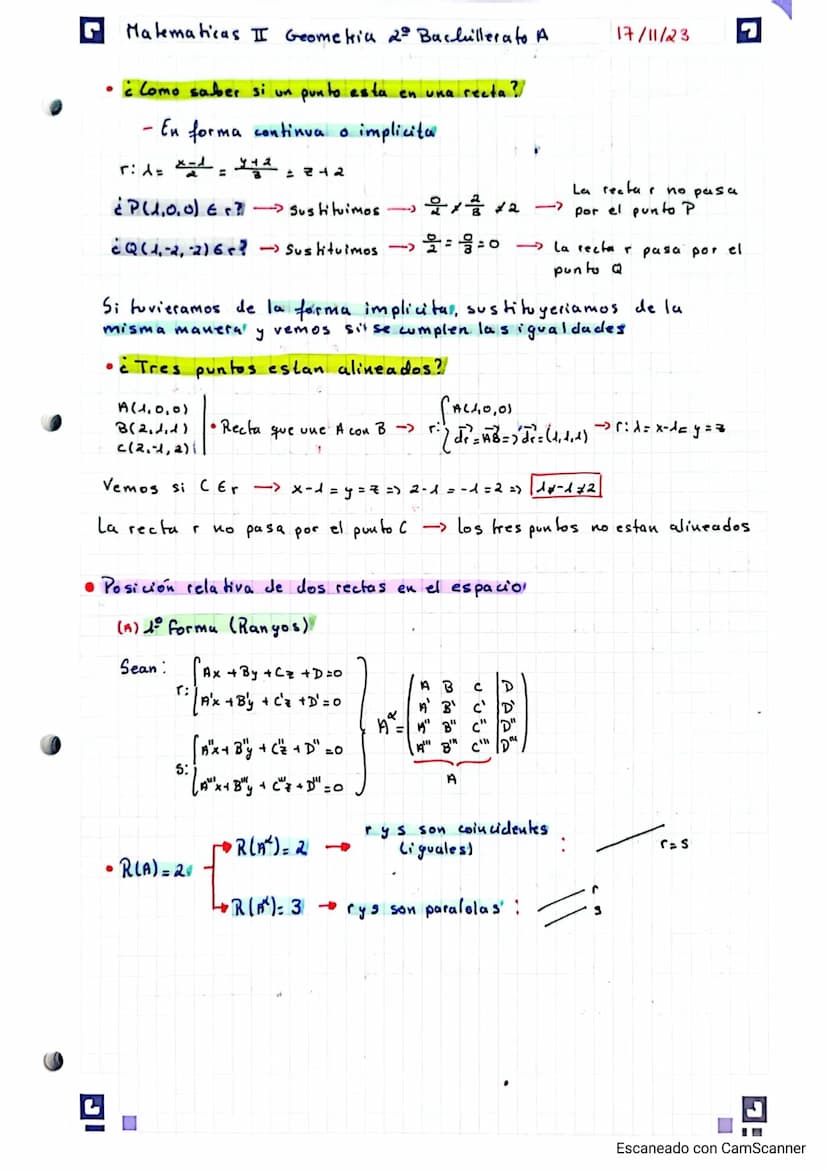 Matematicas II Geometria 2º Bachillerato A 17/11/23
• ¿Como saber si un punto esta en una recta?
- En forma continua o implicita
r: λ = (x-1)/2 = (y+2)/3 = z+2
¿P(1,0,0) ∈ r? → Sustituimos → 0/2 ≠ 2/3 ≠ 2 → La recta r no pasa
por el punto P
¿Q(1,-2,-2) ∈ r? → Sustituimos → 0/2 = 0/3 = 0 → La recta r pasa por el
punto Q
Si tuvieramos de la forma implicita, sustituyeriamos de la
misma manera y vemos si se cumplen las igualdades
• ¿Tres puntos estan alineados?
A(1,0,0)
B(2,1,1) • Recta que une A con B → r: { A(1,0,0)
C(2,-1,2) dr = AB => dr = (1,1,1) → r: λ = x-1 = y = z
Vemos si C ∈ r → x-1 = y = z => 2-1 = -1 = 2 => 1 ≠ -1 ≠ 2
La recta r no pasa por el punto C → los tres puntos no estan alineados
• Posición relativa de dos rectas en el espacio
(A) 1º Forma (Rangos)
Sean: r: { Ax + By + Cz + D = 0
A'x + B'y + C'z + D' = 0
s: { A''x + B''y + C''z + D'' = 0
A'''x + B'''y + C'''z + D''' = 0
A* =
A B C | D
A' B' C' | D'
A'' B'' C'' | D''
A''' B''' C''' | D'''
A
• R(A) = 2
R(A*) = 2 → r y s son coincidentes
(iguales) : r = s
R(A*) = 3 → r y s son paralelas : r
s
Escaneado con CamScanner